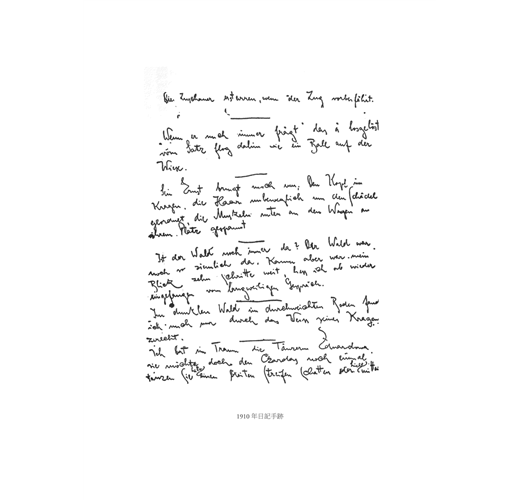 Die Zuschauer erstarren, wenn der Zug vorbeifährt.
Wenn er mich immer frägt" das ä losgelöst
vom Satz flog dahin wie ein Ball auf der
Wiese.
Sein Ernst bringt mich um. Den Kopf im
Kragen, die Haare unbeweglich um den Schädel
geordnet, die Muskeln unten an den Wangen an
ihrem Platz gespannt
Ist der Wald noch immer da? Der Wald war
noch so ziemlich da. Kaum aber war mein
Blick zehn Schritte weit, liess ich ab wieder
eingefangen vom langweiligen Gespräch.
Im dunklen Wald im durchweichten Boden fand
ich mich nur durch das Weiss seines Kragens
zurecht.
Ich bat im Traum die Tänzerin Eduardowa,
sie möchte doch den Czardas noch einmal
tanzen. Sie hatte einen breiten Streifen Schatten oder Licht mitten
1910 年日記手跡